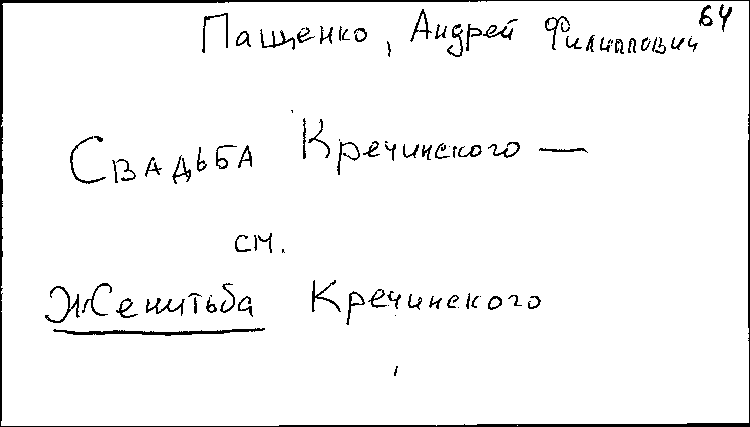 64
Пащенко, Андрей Филиппович
Свадьба Кречинского —
см.
Женитьба Кречинского